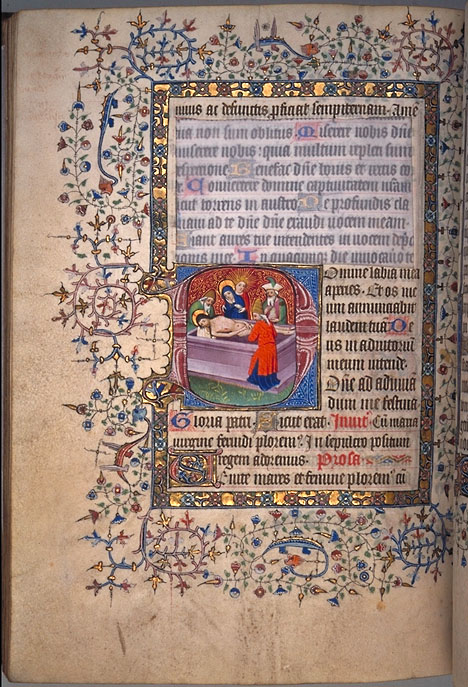 uiuis ac defunctis proficiat sempiternam. Ame
uia non sum oblitus Miserere nobis dñe
miserere nobis: quia multum repleti sumus
Benefac dñe bonis et rectis cor
Convertere domine captiuitatem nram
sicut torrens in austro De profundis cla
maui ad te dñe dñe exaudi uocem meam.
Fiant aures tue intendentes in uocem depc
Domine labia mea
aperies. Et os me
um annunciabit
laudem tuā De
us in adiutoriū
meum intende.
Dñe ad adiuua
dum me festina
Gloria patri. Sicut erat. Inuit Cū maria
uirgine feruidi plorem? In sepulcro positum
Regem adremus. Prosa
Venite mares et femine plorem